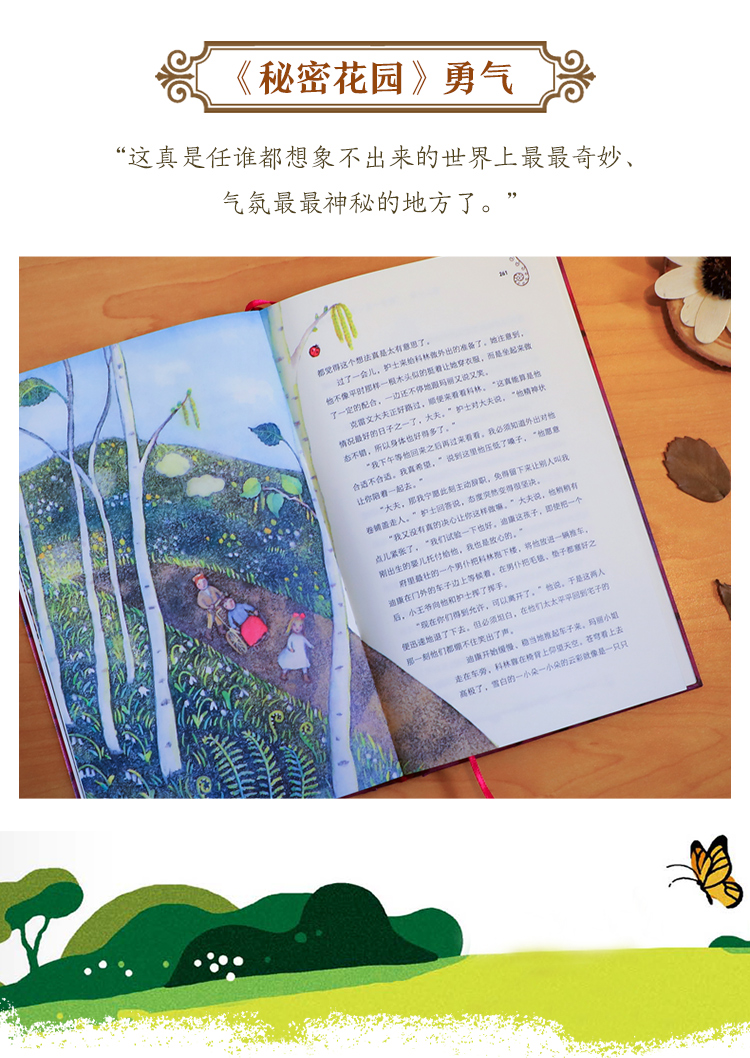 《秘密花园》勇气
“这真是任谁都想象不出来的世界上最最奇妙、
气氛最最神秘的地方了。”
261
都觉得这个想法真是太有意思了。
过了一会儿，护士来给科林做外出的准备了，她注意到，
他不像平时那样一根木头似的挺着让她穿衣服，而是坐起来做
了一定的配合，一边还不停地跟玛丽又说又笑。
克雷文大夫正好路过，顺便来看看科林。“这真能算是他
情况最好的日子之一了，大夫。”护士对大夫说，“他精神状
态不错，所以身体也好得多了。”
“我下午等他回来之后再过来看看，我必须知道外出对他
合适不合适。我真希望，”说到这里他压低了嗓子，“他愿意
让你陪着一起去。”
“大夫，那我宁愿此刻主动辞职，免得留下来让别人叫我
卷铺盖走人。”护士回答说，态度突然变得很坚决。
“我又没有真的决心让你这样做嘛。”大夫说，他稍稍有
点儿紧张了。“我们试验一下也好。迪康这孩子，即使把一个
刚出生的婴儿托付给他，我也是放心的。”
府里最壮的一个男仆把科林抱下楼，将他放进一辆推车，
迪康在门外的车子边上等候着。在男仆把毛毯、垫子都塞好之
后，小王爷向他和护士挥了挥手。
“现在你们得到允许，可以离开了。”他说，于是这两人
便迅速地退了下去，但必须坦白，在他们太太平平回到宅子的
那一刻他们都绷不住笑出了声。
迪康开始缓慢、稳当地推起车子来。玛丽小姐
走在车旁，科林靠在椅背上仰望天空。苍穹看上去
高极了，雪白的一小朵一小朵的云彩就像是一只只